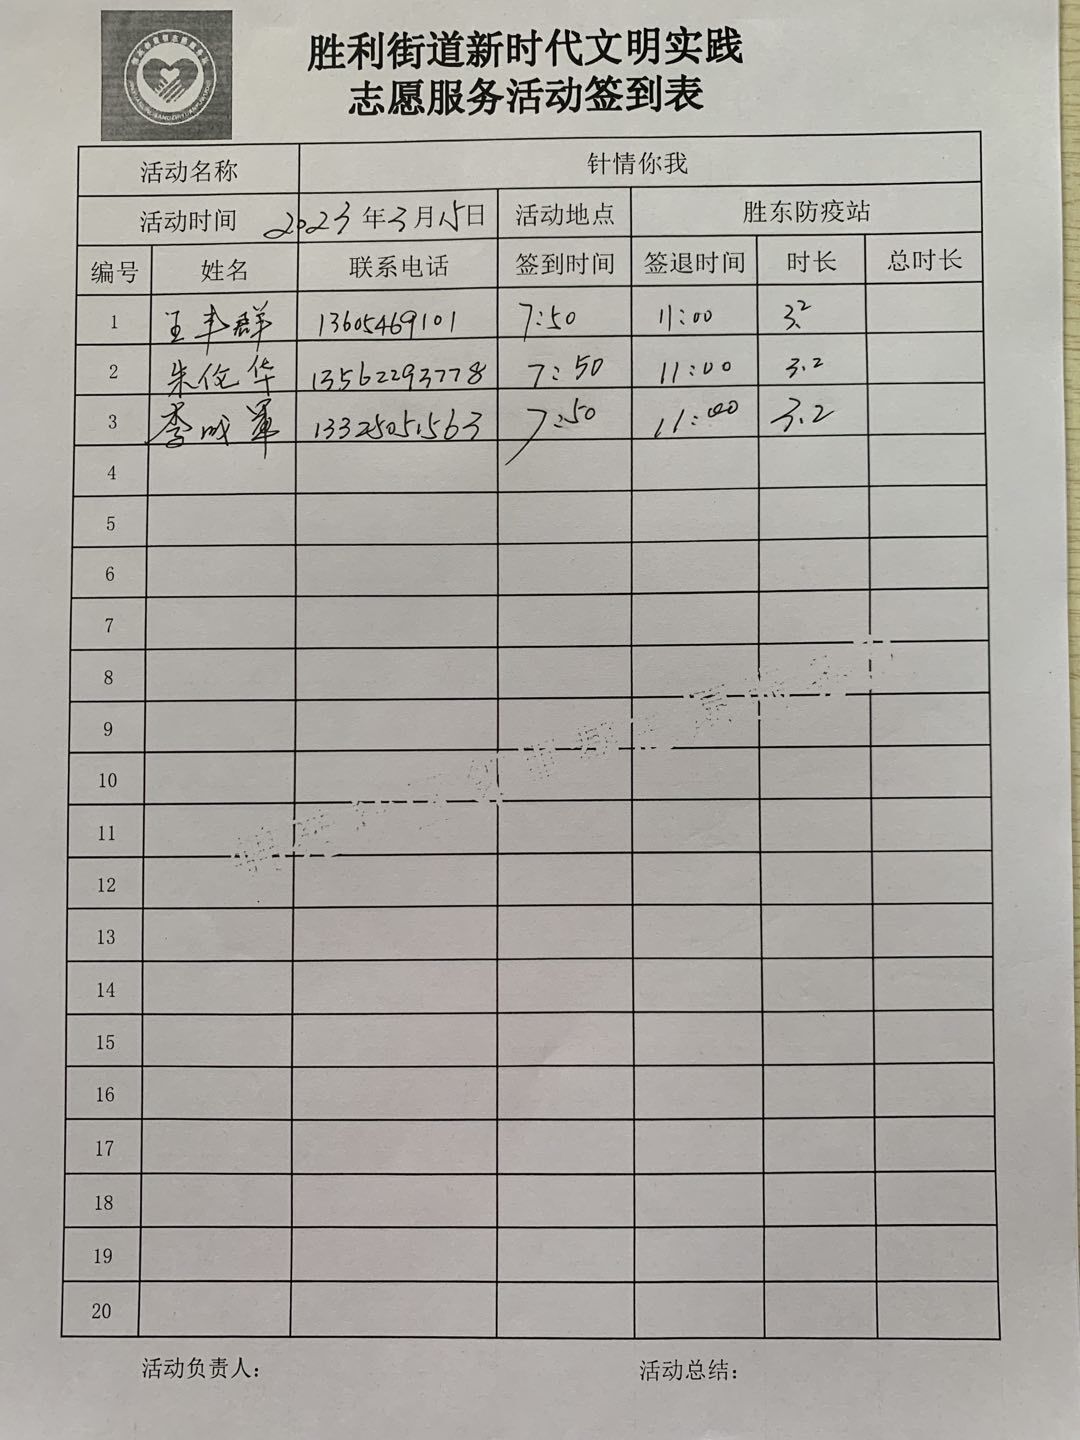 胜利街道新时代文明实践
志愿服务活动签到表
活动名称 针情你我
活动时间 2023年3月15日 活动地点 胜东防疫站
编号 姓名 联系电话 签到时间 签退时间 时长 总时长
1 王丰群 13605469101 7:50 11:00 3.2
2 朱伦华 13562293778 7:50 11:00 3.2
3 李成军 13325051563 7:50 11:00 3.2
4
5
6
7
8
9
10
11
12
13
14
15
16
17
18
19
20
活动负责人： 活动总结：